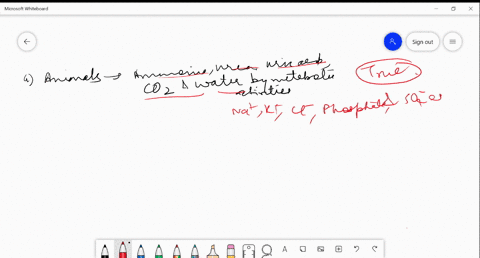 Microsoft Whiteboard
Sign out
a) Animals → Ammonia, urea, uric acid,
CO2 & water by metabolic
activities
True
Na+, K+, Cl-, Phosphate,